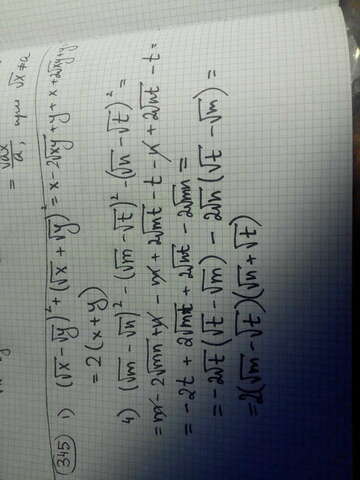 = √ax/a, при √x ≠ a
345 1) (√x - √y)² + (√x + √y)² = x - 2√xy + y + x + 2√xy + y
= 2(x + y)
4) (√m - √n)² - (√m - √t)² - (√n - √t)² =
= m - 2√mn + n - m + 2√mt - t - n + 2√nt - t =
= -2t + 2√mt + 2√nt - 2√mn =
= -2√t(√t - √m) - 2√n(√t - √m) =
= 2(√m - √t)(√n + √t)